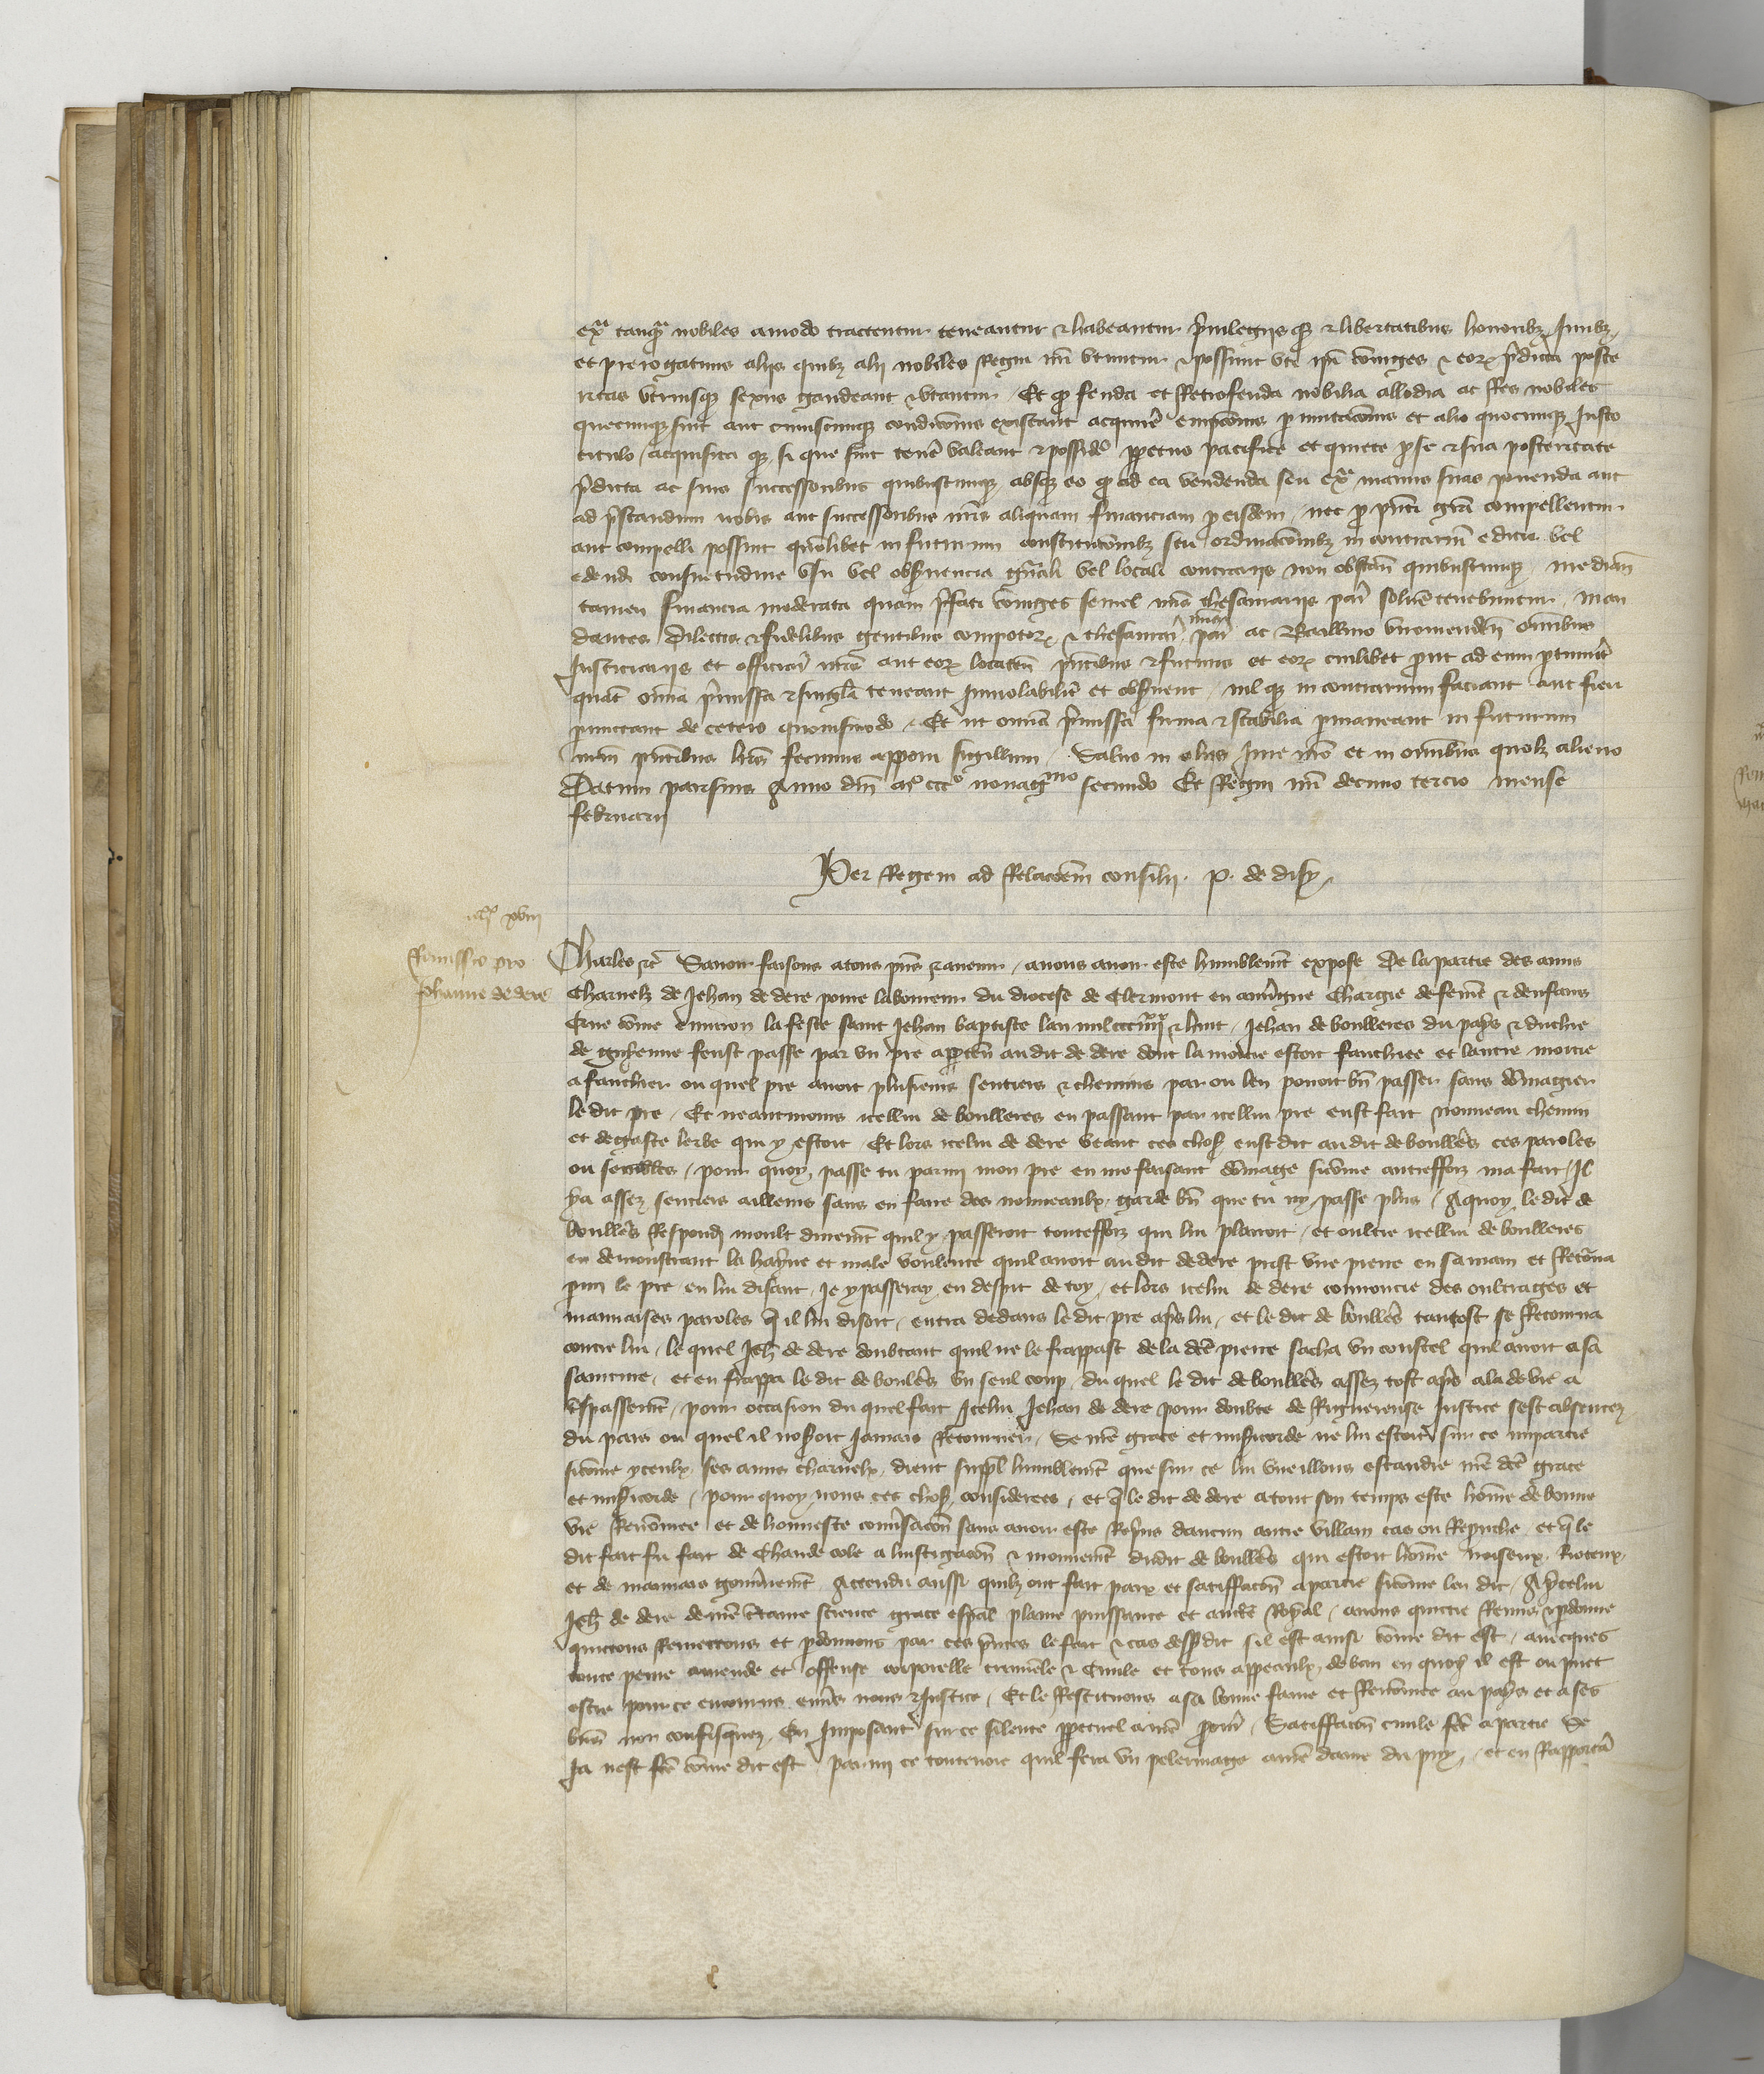 extra tanquam nobiles amodo tractentur teneantur & habeantur privilegiis que & libertatibus honoribus Juribus
et prerogativis aliis quibus alii nobiles Regni nostri utuntur & possunt uti ipsi coniuges & eorum predicta poste
ritas utriusque sexus gaudeant & utantur. Et quod feuda et Retrofeuda nobilia allodia ac Res nobiles
quecunque sint aut cuiuscunque condicionis existant acquirere empcionis permutacionis et alio quocunque Justo
titulo / acquisita que si que sint tenere valeant & possidere perpetuo pacifice et quiete pro se & sua posteritate
predicta ac suis successoribus quibuscunque absque eo quod ad ea vendenda seu extra manus suas ponenda aut
ad prestandum nobis aut successoribus nostris aliquam financiam pro eisdem nec pro presenti gracia compellentur
aut compelli possint quomodolibet in futurum constitucionibus seu ordinacionibus in contrarium edictis vel
edendis consuetudine usu vel observencia generali vel locali contrariis non obstantibus quibuscunque mediante
tamen financia moderata quam prefati coniuges semel nostris thesaurariis parisius solvere tenebuntur. Man
dantes dilectis & fidelibus gentibus compotorum & thesaurariis nostris parisius ac Baillivo viromendensi omnibus
Justiciariis et officiariis nostris aut eorum locatenentibus presentibus & futuris et eorum cuilibet prout ad eum pertinuerit
quatenus omnia premissa & singula teneant Inviolabiliter et observent nil que in contrarium faciant aut fieri
permittant de cetero quovismodo. Et ut omnia premissa firma & stabilia permaneant in futurum
nostrum presentibus litteris fecimus apponi sigillum. Salvo in aliis Jure nostro et in omnibus quolibet alieno
Datum parisius Anno domini mo ccco nonagmo secundo Et Regni nostri decimo tercio mense
februarii
Per Regem ad Relacionem consilii. P. de disy.
xviii
Remissio pro
Johanne de dere
Charles etc Savoir faisons a tous presens & avenir / a nous avoir este humblement expose De la partie des amis
Charnelz de Jehan de dere povre laboureur du diocese de Clermont en auvergne Chargie de femme & denfans
Que comme environ la feste saint Jehan baptiste lan mil ccc iiiixx & huit / Jehan de boulieres du pays & duchie
de guyenne feust passe par un pre appartenant au dit de dere dont la moitie estoit fauchiee et lautre moitie
a fauchier ou quel pre avoit plusieurs sentiers & chemins par ou len povoit bien passer sans dommagier
le dit pre. Et neantmoins icellui de boulieres en passant par icellui pre eust fait nouveau chemin
et degaste lerbe qui y estoit Et lors icelui de dere veant ces choses eust dit au dit de boulieres ces paroles
ou semblables / pour quoy passe tu parmi mon pre en me faisant dommage si comme autreffoiz ma fait / Il
ya assez sentiers ailleurs sans en faire des nouveaulx garde bien que tu ny passe plus / A quoy le dit de
boulieres Respondi moult durement quil y passeroit touteffoiz qui lui plairoit / et oultre icellui de boulieres
en demonstrant la hayne et male voulente quil avoit au dit de dere prist une pierre en sa main et Retourna
parmi le pre en lui disant Je y passeray en despit de toy / et lors icelui de dere courroucie des oultrages et
mauvaises paroles que il lui disoit / entra dedans le dit pre apres lui / et le dit de boulieres tantost se Retourna
contre lui / le quel Jehan de dere doubtant quil ne le frappast de la dicte pierre sacha un coustel quil avoit a sa
sainture / et en frappa le dit de boulieres un seul coup du quel le dit de boulieres assez tost apres ala de vie a
trespassement / pour occasion du quel fait Icelui Jehan de dere pour doubte de Rigueureuse Justice sest absentez
du pais ou quel il noseroit Jamais Retourner / Se nostre grace et misericorde ne lui estoit sur ce impartie
si comme yceulx ses amis charnelx dient suppliant humblement que sur ce lui vueillons estandre nostre dicte grace
et misericorde / pour quoy nous ces choses considerees / et que le dit de dere a tout son temps este homme de bonne
vie Renommee et de honneste conversacion sans avoir este Repris daucun autre villain cas ou Reprouche et que le
dit fait fu fait de Chaude cole a linstigacion & mouvement dudit de boulieres qui estoit homme noiseux Rioteux
et de mauvais gouvernement Attendu aussi quilz ont fait paix et satisffacion a partie si comme len dit / A ycelui
Jehan de dere de nostre certaine science grace especial plaine puissance et auctorite Royal / avons quictie Remis & pardonne
quictons Remettons et pardonnons par ces presentes le fait & cas dessusdit sil est ainsi comme dit est / avecques
toute peine amende et offense corporelle criminele & Civile et tous appeaulx de ban en quoy il est ou puet
estre pour ce encouru envers nous & Justice / Et le Restituons a sa bonne fame et Renommee au pays et a ses
biens non confisquez En Imposant sur ce silence perpetuel a nostre procureur / Satisffacion civile faite a partie Se
Ja nest faite comme dit est parmi ce toutevoie quil fera un pelerinage a nostre dame du puy / et en Rapportera